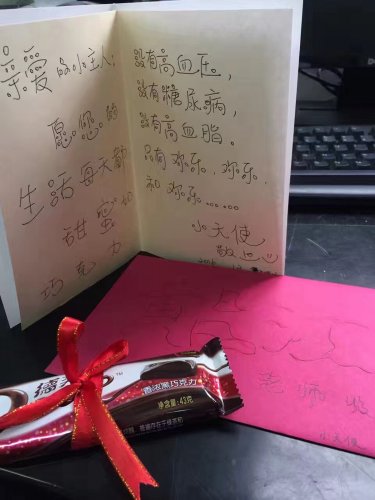 亲爱的小主人:
愿您的
生活每天都
甜蜜如
巧克力
没有高血压,
没有糖尿病,
没有高血脂。
只有欢乐、欢乐、
和欢乐……
小天使
敬上
老师收
小天使
德芙
香浓黑巧克力
净含量:43克